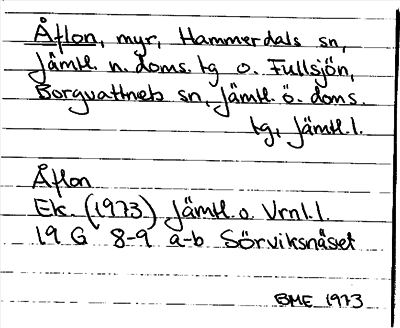 Åflon, myr, Hammerdals sn,
Jämtl. n. doms. tg o. Fullsjön,
Borgvattnets sn, Jämtl. ö. doms.
tg, Jämtl. l.
Åflon
Ek. (1973) Jämtl. o. Vrnl. l.
19 G 8-9 a-b Sörviksnäset
BME 1973